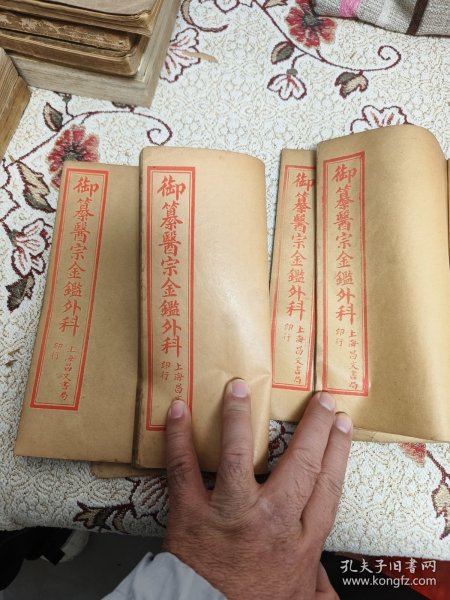 御纂醫宗金鑑外科
上海昌文書局
印行
御纂醫宗金鑑外科
上海昌
印行
御纂醫宗金鑑外科
上海昌文書局
印行
御纂醫宗金鑑外科
上海昌文書局
印行
孔夫子旧书网
www.kongfz.com